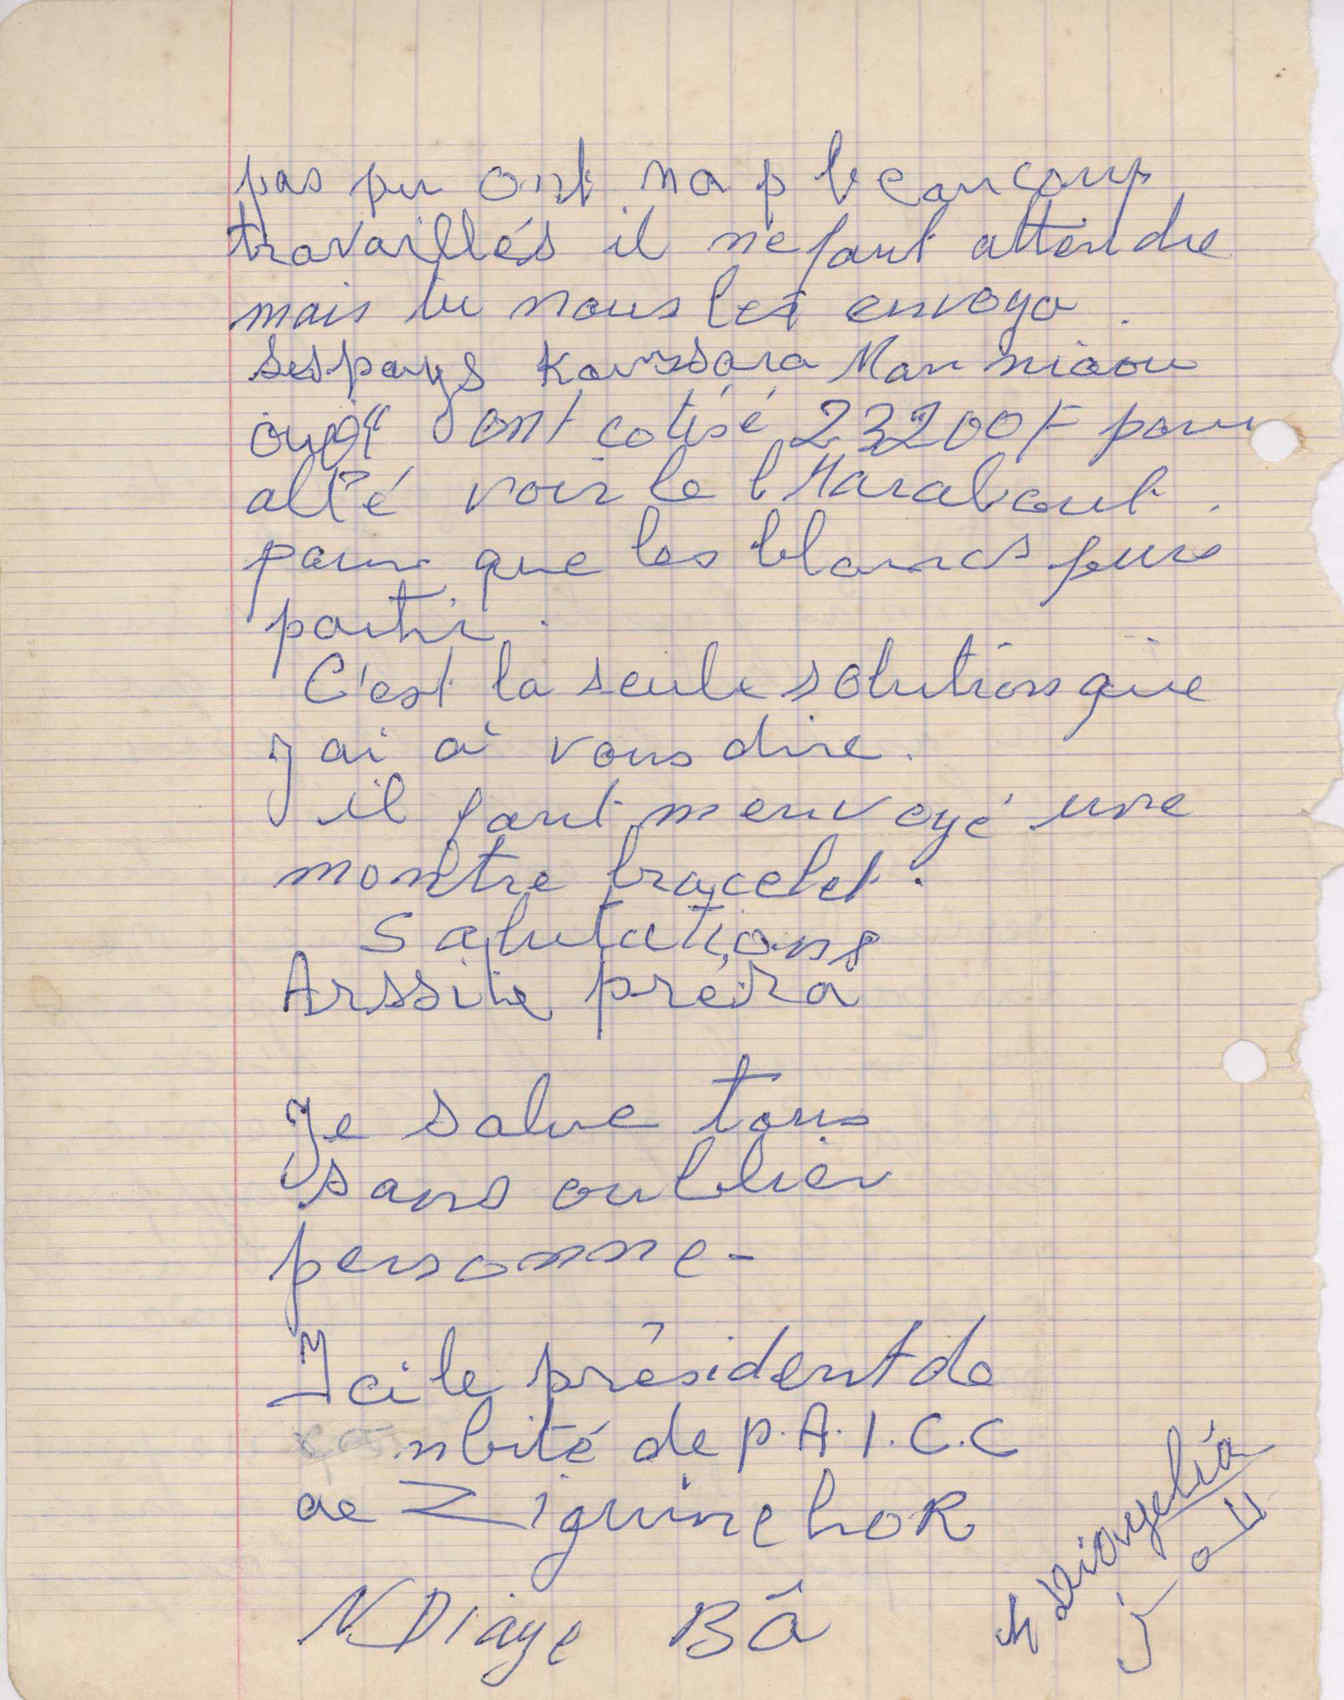 pas pu ont na p beaucoup
travaillés il ne faut attendre
mais tu nous les envoya.
ses pays Koussara Manniaou
ont cotisé 23200F pour
allé voir le Marabout.
pour que les blancs
partir.
C'est la seule solution que
j ai à vous dire.
il faut m envoyé une
montre bracelet.
Salutations
Arssite préira
Je salue tous
sans oublier
personne-
Ici le président de
mbité de P.A.I.C.C
de ZiguinchoR
N Diaye Bâ